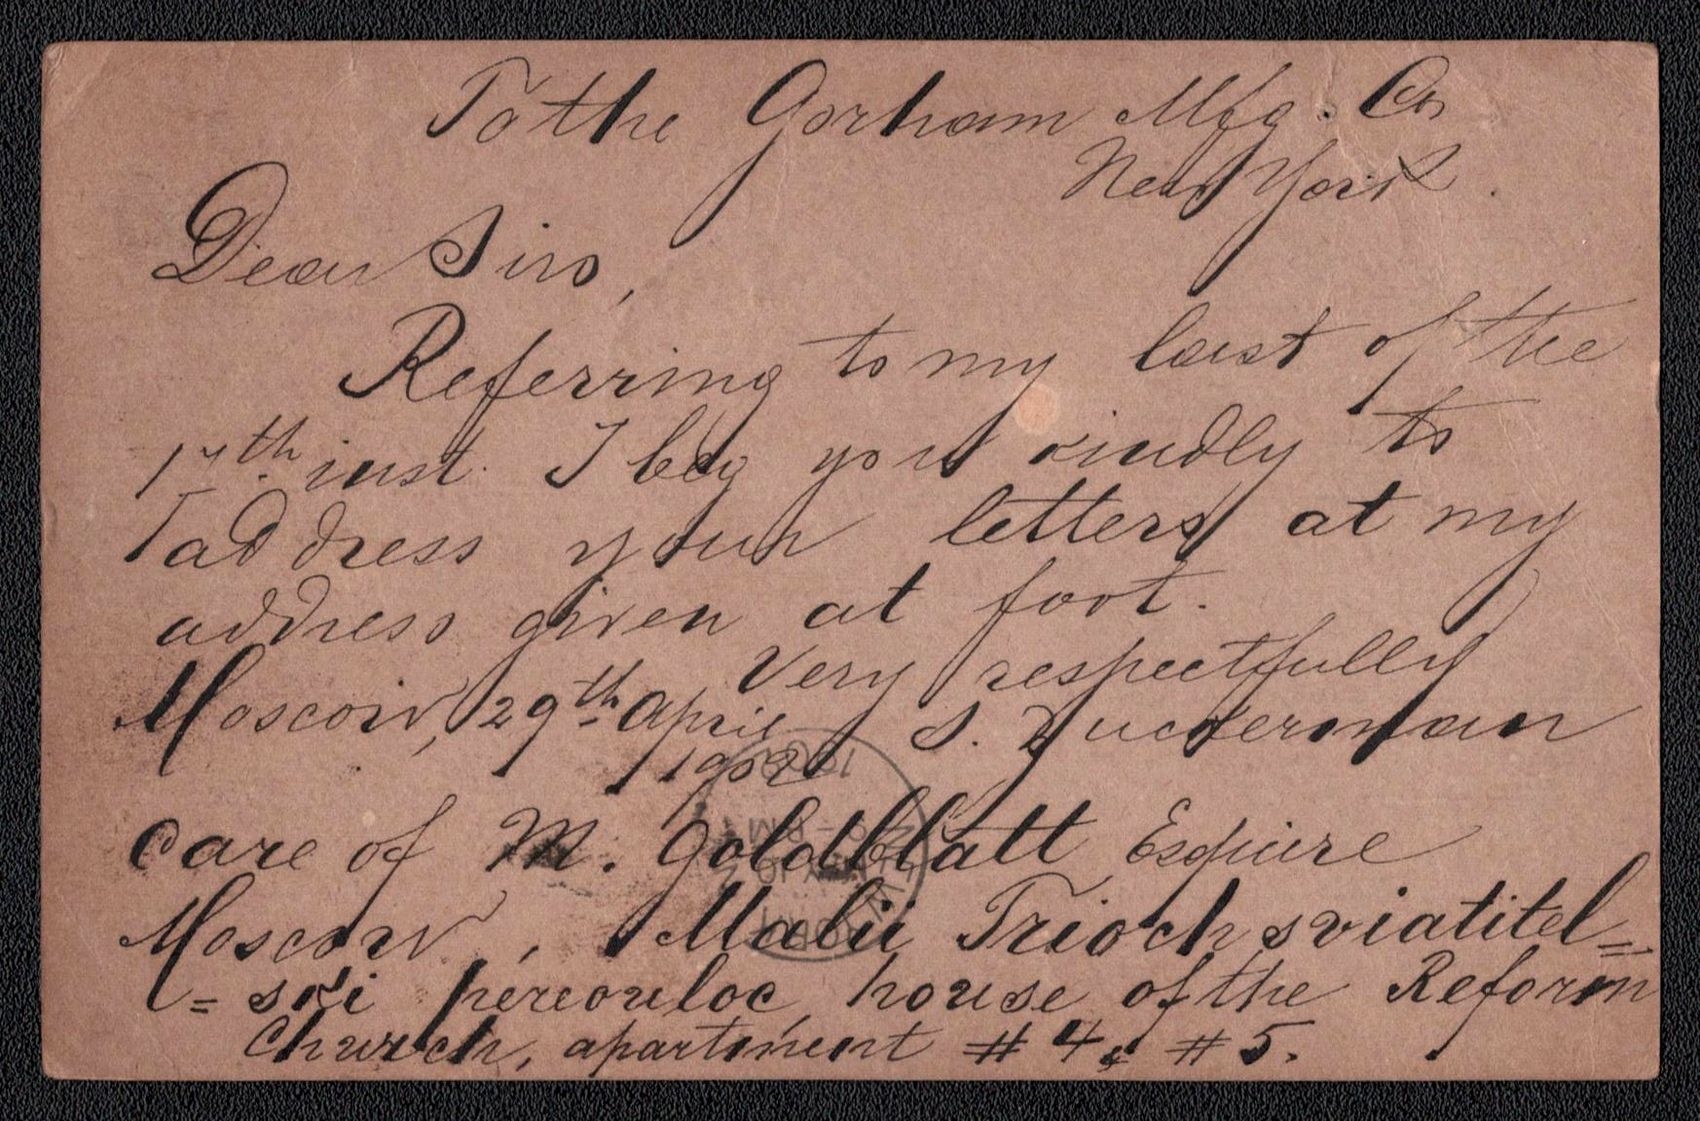 To the Gorham Mfg. Co
New York.
Dear Sirs,
Referring to my last of the
17th. inst. I beg you kindly to
address your letters at my
address given at foot.
Very respectfully
Moscow, 29th April S. Zuckerman
1902
Care of M. Goldblatt Esquire
Moscow, Malii Trioch sviatitel=
=ski pereouloc, house of the Reform
Church, apartment # 4 & # 5.